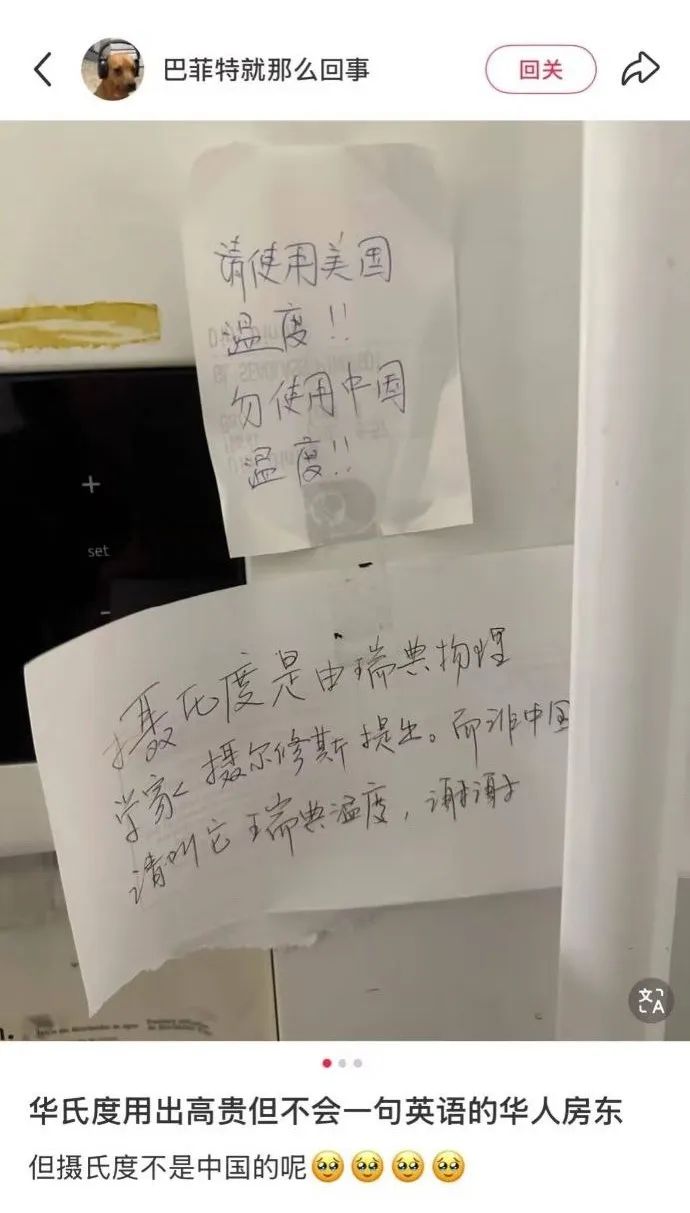 巴菲特就那么回事
回关
请使用美国
温度!!
勿使用中国
温度!!
+
set
-
摄氏度是由瑞典物理
学家摄尔修斯提出。而非中国
请叫它瑞典温度，谢谢
文A
华氏度用出高贵但不会一句英语的华人房东
但摄氏度不是中国的呢🥹🥹🥹🥹